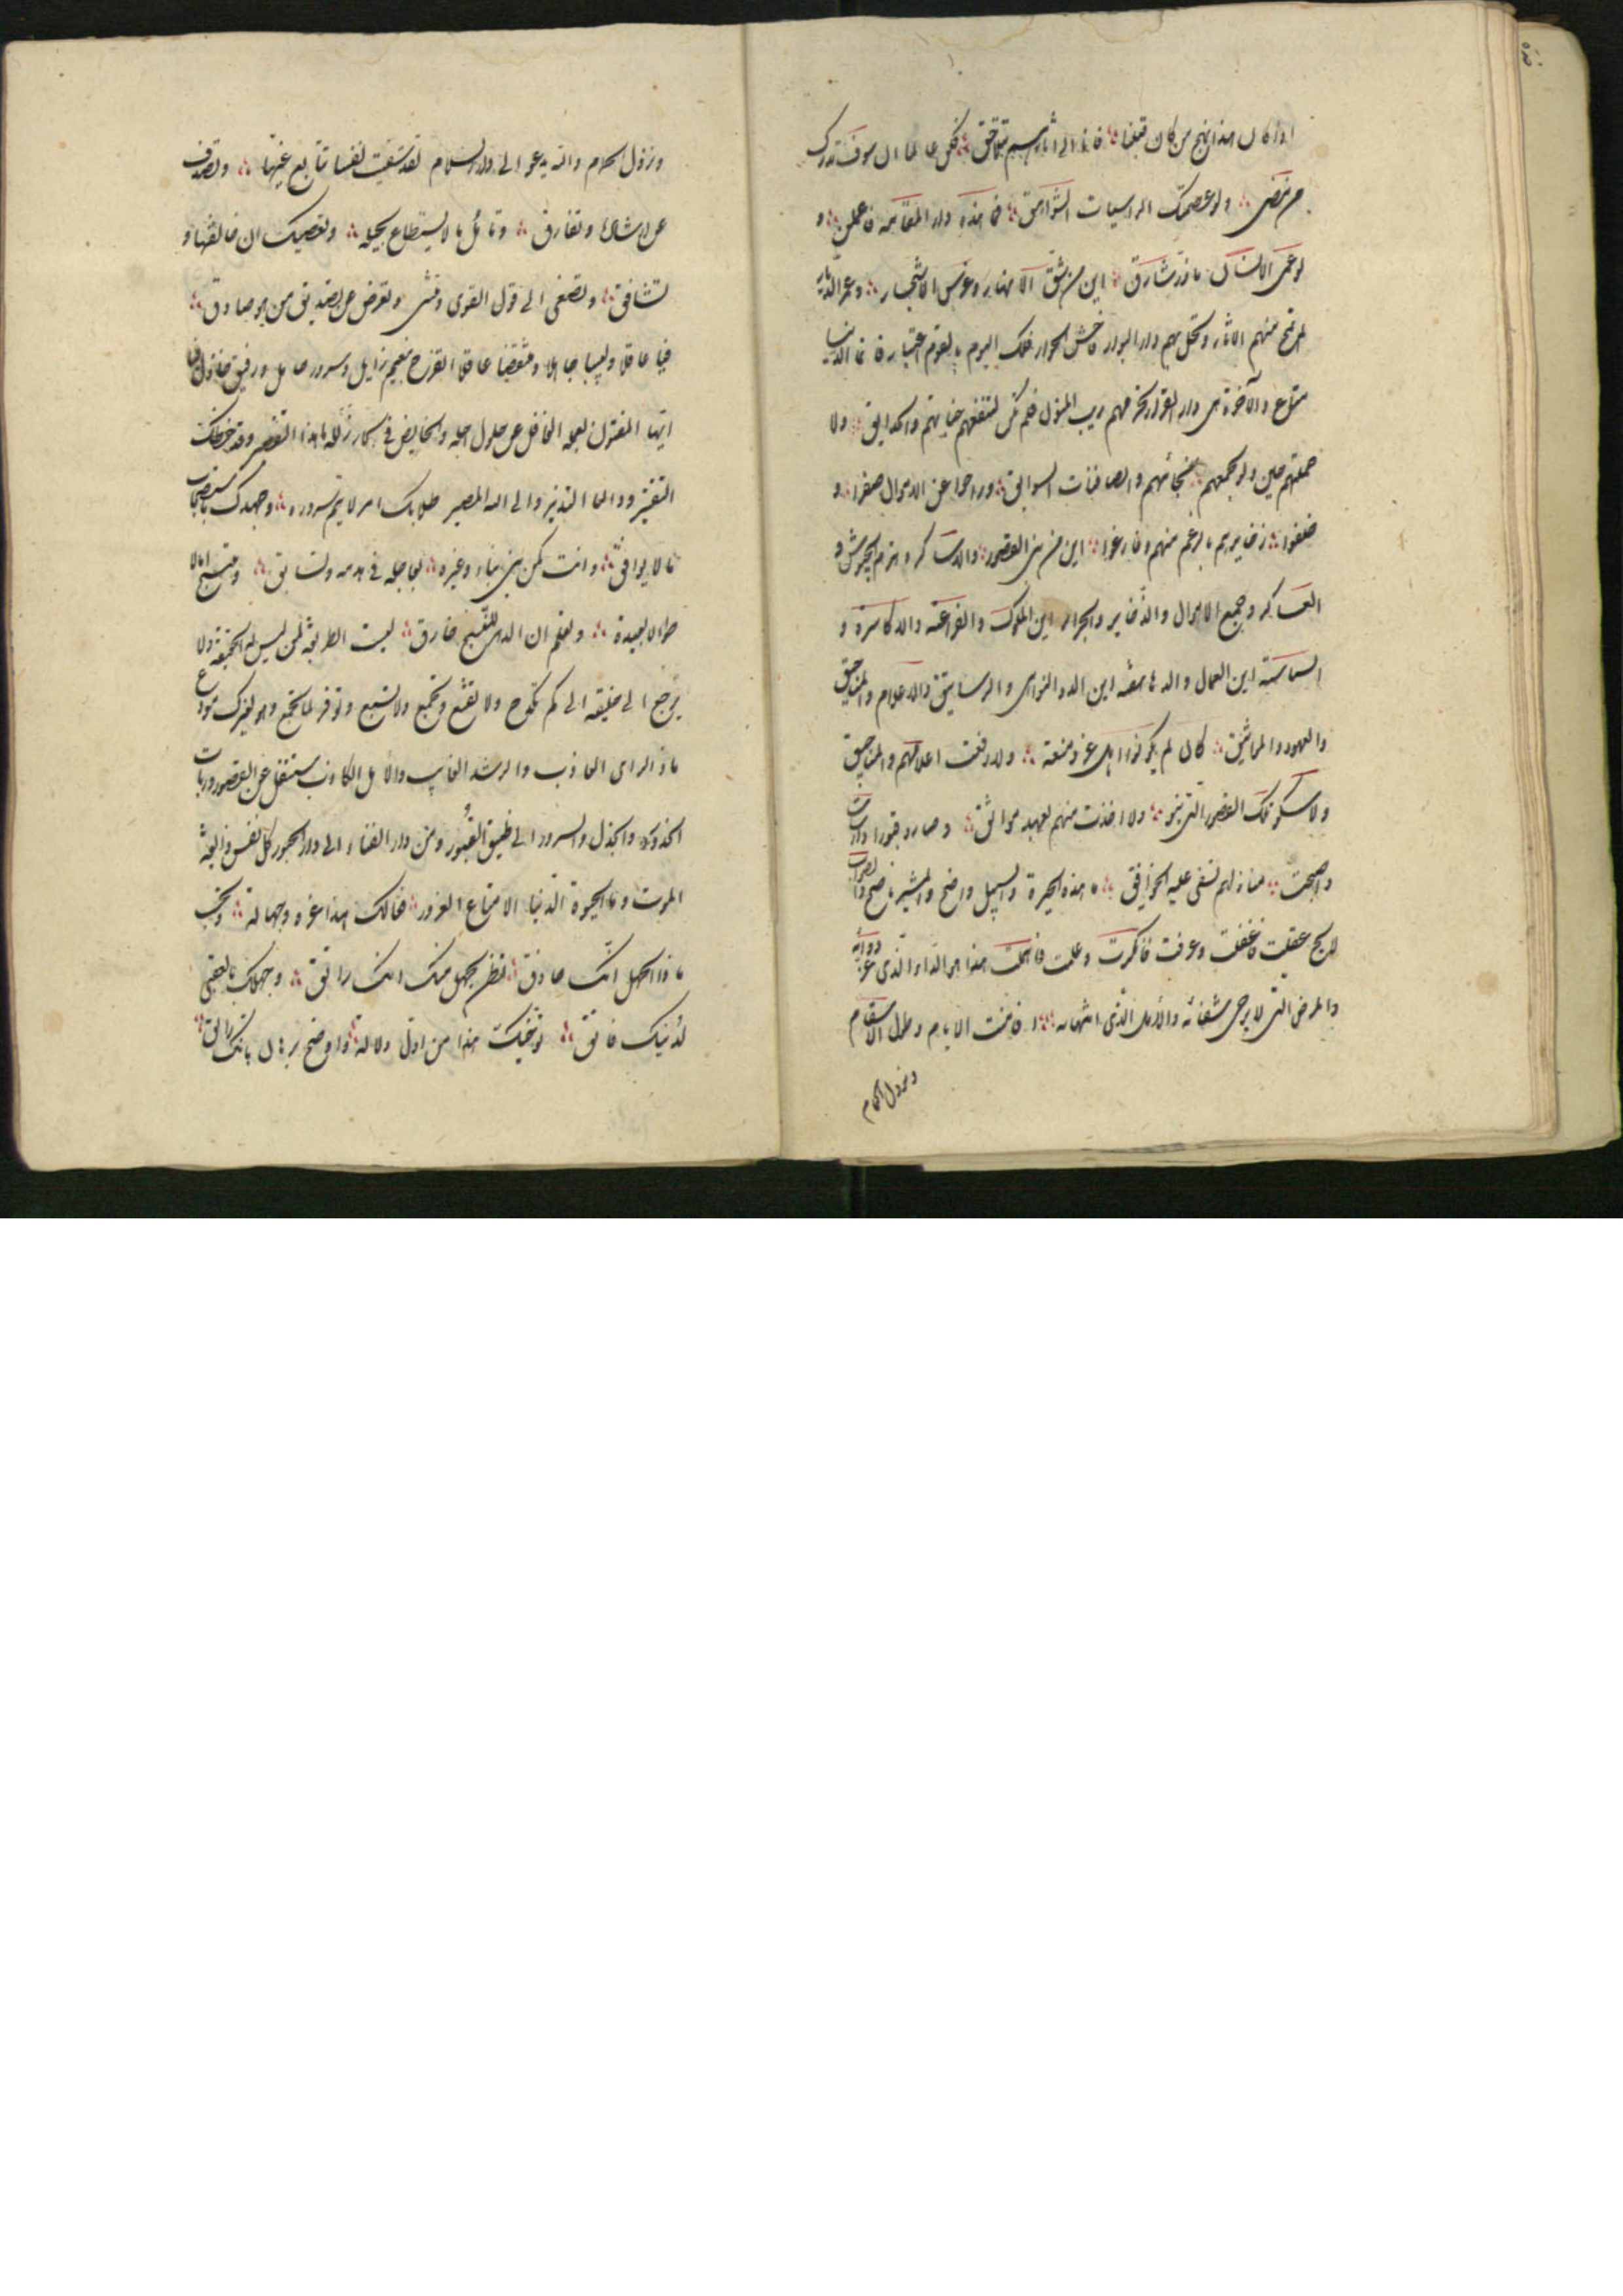 اذا كان هذا نهج من كان قبلنا فانا الى آثارهم نتلاحق فكن عالما ان سوف تدرك
من مضى ولو عصمتك الراسيات الشواهق فما هذه دار المقامة فاعلمن و
لو عمر الانسان ما ذر شارق اين من شق الانهار و غرس الاشجار و عمر الديار
الم تمح منهم الآثار و تحل بهم دار البوار فاخش الجوار فلك اليوم بالقوم اعتبار فانما الدنيا
متاع والآخرة هى دار القرار تخرمهم ريب المنون فلم تكن لتنفعهم جناتهم والحدايق ولا
حملتهم حين ولوا بجمعهم نجائبهم والصافنات السوابق وراحوا عن الاموال صفرا و
خلفوا ذخايرهم بالرغم منهم وفارقوا اين من بنى القصور والدساكر و هزم الجيوش و
العساكر و جمع الاموال والذخاير والجرائر اين الملوك والفراعنة والاكاسرة و
السياسة اين العمال والدهاقنة اين الذوو النواحى والرساتيق والاعلام والمناجيق
والعهود والمواثيق كان لم يكونوا اهل عز و منعة ولا رفعت اعلامهم والمناجيق
ولا سكنوا تلك القصور التى بنوا ولا اخذت منهم بعهد مواثق وصاروا قبورا دارسات
واصبحت منازلهم تسفى عليه الخوافق ما هذه الحيرة والسبيل واضح والمشير ناصح والصواب
لايح عقلت فاغفلت وعرفت فانكرت وعلمت فاهملت هذا هو الداء الذى عز دوائه
والمرض الذى لا يرجى شفائه والامل الذى انتهائه افامنت الايام وطول الاسقام
ونزول الحمام
ونزول الحمام والله يدعو الى دار السلام لقد شقيت نفسا تتابع غيها وتصدف
عن ارشادها وتفارق وتامل ما لا يستطاع بحيله وتعصيك ان خالفتها و
تشاقق وتصغى الى قول الغوى وتنثنى وتعرض عن تصديق من هو صادق
فيا عاقلا ولبيبا جاهلا ومتيقظا غافلا اتفرح بنعيم زايل وسرور حايل ورفيق خاذل فيا
ايها المفتون بعمله الغافل عن حلول اجله والخايض فى بحار زلله ما هذا التقصير وقد وخطك
القتير ووافاك النذير والى الله المصير طلابك امر لا يتم سروره وجهدك باستصحاب
ما لا يوافق وانت كمن يبنى بناء وغيره يعاجله فى هدمه ويسابق وتنسج آمالا
طوالا بعيدة وتعلم ان الدهر للنسج خارق ليست الطريقة لمن ليس له الحقيقة ولا
يرجع الى خليقه الى كم تكدح ولا تقنع وتجمع ولا تشبع وتوفر لما تجمع وهو لغيرك مودع
ماذا الراى العازب والرشد الغايب والامل الكاذب ستنقل عن القصور وربات
الخدور والجذل والسرور الى ضيق القبور ومن دار الفناء الى دار الحبور كل نفس ذائقة
الموت وما الحيوة الدنيا الا متاع الغرور فعالك هذا غره وجهالة وتحسب
ماذا الجهل انك حاذق تظن بجهل منك انك راتق وجهلك بالعقبى
لدينك فاتق توخيك هذا من ادل دلالة واوضح برهان بانك مائق